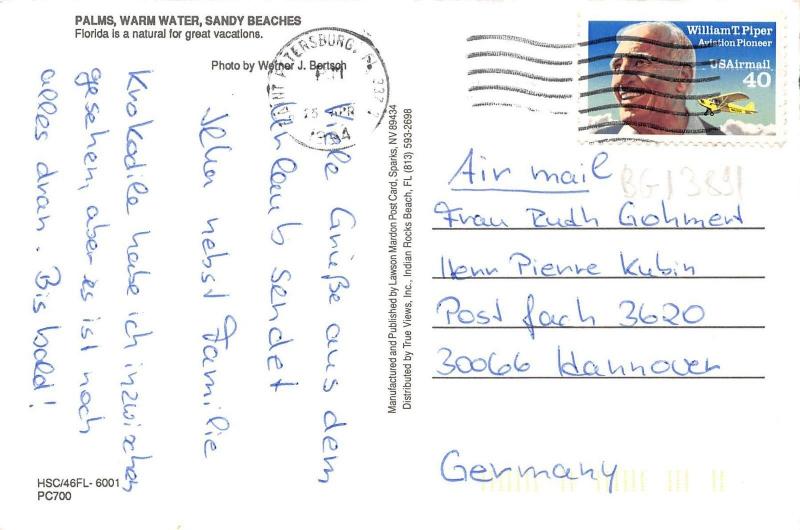 PALMS, WARM WATER, SANDY BEACHES
Florida is a natural for great vacations.
Photo by Werner J. Bertsch
Viele Grüße aus dem
Urlaub sendet
nebst Familie
Krokodile habe ich inzwischen
gesehen, aber es ist noch
alles dran. Bis bald!
HSC/46FL- 6001
PC700
Manufactured and Published by Lawson Mardon Post Card, Sparks, NV 89434
Distributed by True Views, Inc., Indian Rocks Beach, FL (813) 593-2698
SAINT PETERSBURG, FL 337
PM
25 APR
1994
William T. Piper
Aviation Pioneer
USAirmail
40
Air mail
Frau Ruth Gohmert
Herr Pierre Kubin
Postfach 3620
30066 Hannover
Germany